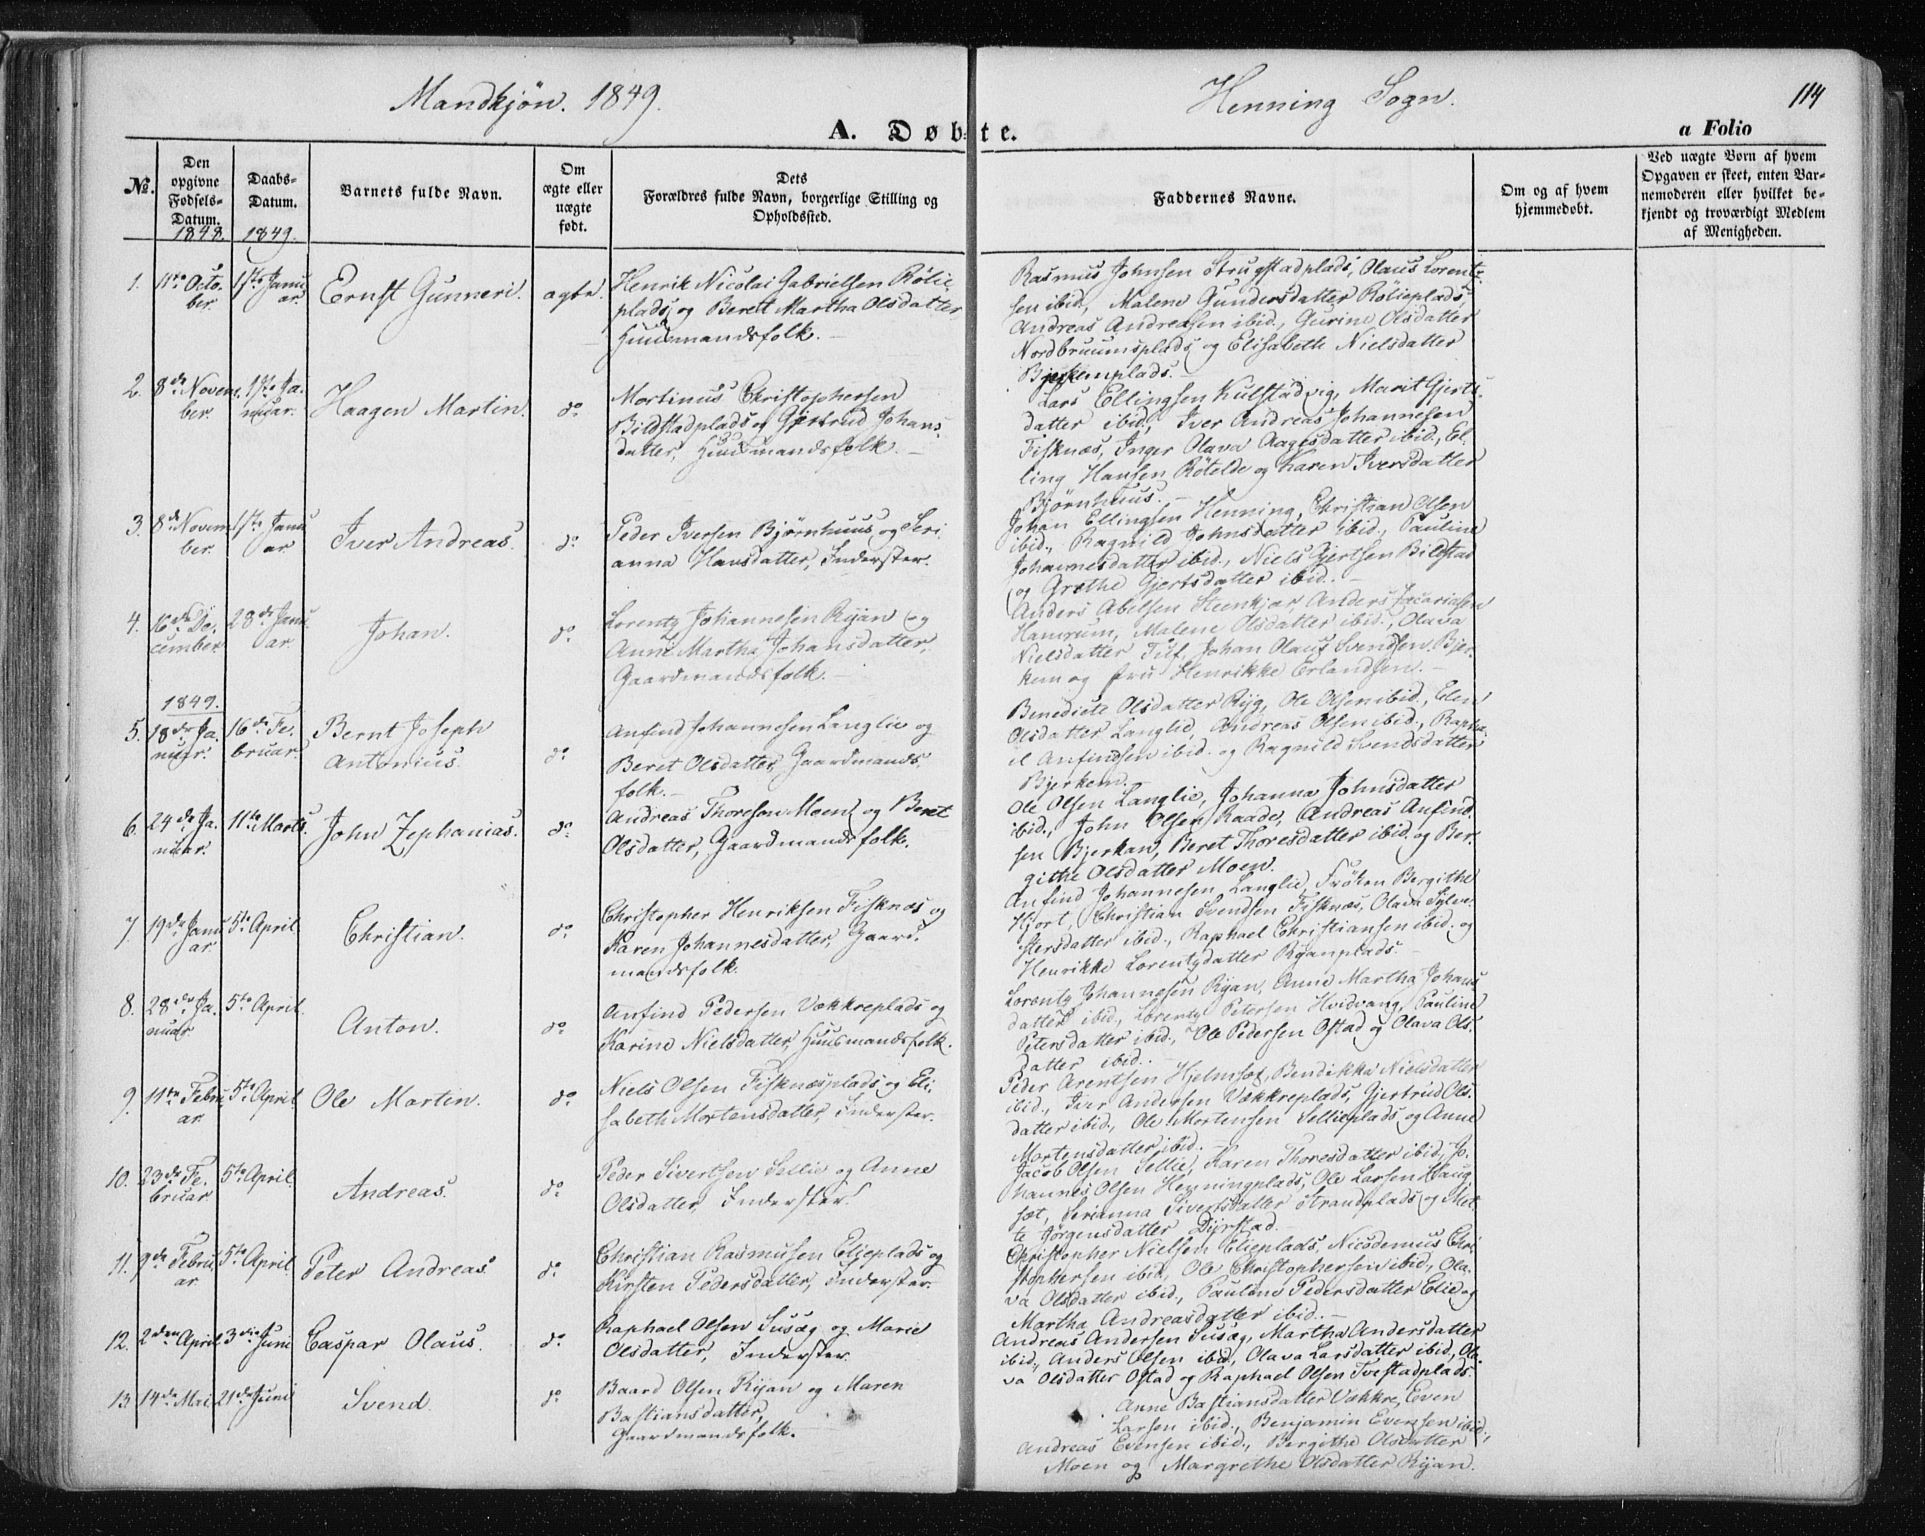 Mandkjøn. 1849.
Henning Sogn.
114
A. Døbte.
a Folio
No.
Den opgivne Fødsels-Datum.
1848.
Daabs-Datum.
1849.
Barnets fulde Navn.
Om ægte eller uægte født.
Dets Forældres fulde Navn, borgerlige Stilling og Opholdssted.
Faddernes Navne.
Om og af hvem hjemmedøbt.
Ved uægte Børn af hvem
Opgaven er skeet, enten Bar-
nemoderen eller hvilket be-
kjendt og troværdigt Medlem
af Menigheden.
1. 11te Octo-
ber.
1ste Janu
ar.
Ernst Gunneri.
ægte.
Henrik Nicolai Gabrielsen Rølie
plads og Berett Martha Olsdatter
Huusmandsfolk.
Rasmus Johnsen Strugstadplads, Olaus Lorent-
sen ibid., Malene Gundersdatter Rølieplads,
Andreas Andreasen ibid., Gurine Olsdatter
Nordbruumsplads og Elisabeth Nielsdatter
Bjerkemplads.
2. 8de Novem
ber.
1ste Ja-
nuar.
Haagen Martin.
do
Mortinus Christophersen
Bildstadplads og Gjertrud Johans-
datter, Huusmandsfolk.
Lars Ellingsen Kulstadvig, Marit Gjerts-
datter ibid., Iver Andreas Johannesen
Fisknæs, Inger Olava Aagesdatter ibid., El-
ling Hansen Røtelde og Karen Iversdatter
Bjørnhuus.
3. 8de Novem
ber.
1ste Janu
ar
Iver Andreas.
do
Peder Iversen Bjørnhuus og Seri-
anna Hansdatter, Inderster.
Johan Ellingsen Henning, Christian Olsen
ibid., Ragnild Johnsdatter ibid., Pauline
Johannesdatter ibid., Niels Gjertsen Bildstad
og Grethe Gjertsdatter ibid.
4. 16de De-
cember
28de Janu
ar.
Johan.
do
Lorentz Johannesen Ryan og
Anne Martha Johansdatter,
Gaardmandsfolk.
Anders Abelsen Steenkjær, Anders Zacariasen
Hamrum, Malene Olsdatter ibid., Olava
Nielsdatter Tuf, Johan Olaus Svendsen Bjer-
kem og Fru Henrikke Erlandsen.
1849.
5. 18de Ja-
nuar.
16de Fe-
bruar.
Bernt Joseph
Antonius.
do
Anfind Johannesen Langlie og
Beret Olsdatter, Gaardmands-
folk.
Benedicte Olsdatter Ryg, Ole Olsen ibid., Elen
Olsdatter Langlie, Andreas Olsen ibid., Rapha-
el Anfindsen ibid. og Ragnild Svendsdatter
Bjerkem.
6. 24de Ja-
nuar.
11te Marts.
John Zephanias.
do
Andreas Thoresen Moen og Beret
Olsdatter, Gaardmandsfolk.
Ole Olsen Langlie, Johanna Johnsdatter
ibid., John Olsen Raade, Andreas Anfind-
sen Bjerkan, Beret Thoresdatter ibid. og Ber-
githe Olsdatter Moen.
7. 19de Janu
ar
5te April
Christian.
do
Christopher Henriksen Fisknæs og
Karen Johannesdatter, Gaard-
mandsfolk.
Anfind Johannesen Langlie, Frøken Bergithe
Hjort, Christian Svendsen Fisknæs, Olava Sylve-
stersdatter ibid., Raphael Christiansen ibid. og
Henrikke Lorentzdatter Ryanplads.
8. 28de Ja-
nuar
5te April.
Anton.
do
Anfind Pedersen Vækkreplads og
Karine Nielsdatter, Huusmandsfolk.
Lorentz Johannesen Ryan, Anne Martha Johans-
datter ibid., Lorentz Petersen Hvidvang, Pauline
Petersdatter ibid., Ole Pedersen Ofstad og Olava Ols-
datter ibid.
9. 11te Febru
ar.
5te April
Ole Martin.
do
Niels Olsen Fisknæsplads og Eli-
sabeth Mortensdatter, Inderster.
Peder Arentsen Hjelmsæt, Bendikka Nielsdatter
ibid., Iver Andersen Vækkreplads, Gjertrud Ols-
datter ibid., Ole Mortensen Sellieplads og Anne
Mortensdatter ibid.
10. 23de Fe-
bruar
5te April.
Andreas.
do
Peder Sivertsen Sellie og Anne
Olsdatter, Inderster.
Jacob Olsen Sellie, Karen Thoresdatter ibid., Jo-
hannes Olsen Henningplads, Ole Larsen Haug-
sæt, Serianna Sivertsdatter Strandplads og Met-
te Jørgensdatter Dyrstad.
11. 9de Febru
ar
5te April.
Peter Andreas
do
Christian Rasmusen Elieplads og
Kirsten Pedersdatter, Inderster.
Christopher Nielsen Elieplads, Nicodemus Chri-
stophersen ibid., Ole Christophersen ibid., Ola-
va Olsdatter ibid., Pauline Pedersdatter Elie og
Martha Andreasdatter ibid.
12. 2den April
3die Juni
Caspar Olaus.
do
Raphael Olsen Susæg og Marie
Olsdatter, Inderster.
Andreas Andersen Susæg, Martha Andersdatter
ibid., Anders Olsen ibid., Olava Larsdatter ibid., Ola-
va Olsdatter Ofstad og Raphael Olsen Tvestadplads.
13 14de Mai
21de Juni
Svend.
do
Baard Olsen Ryan og Maren
Bastiansdatter,
Gaardmandsfolk.
Anne Bastiansdatter Vækkre, Even
Larsen ibid., Benjamin Evensen ibid.,
Andreas Evensen ibid., Bergithe Olsdatter
Moen og Margrethe Olsdatter Ryan.